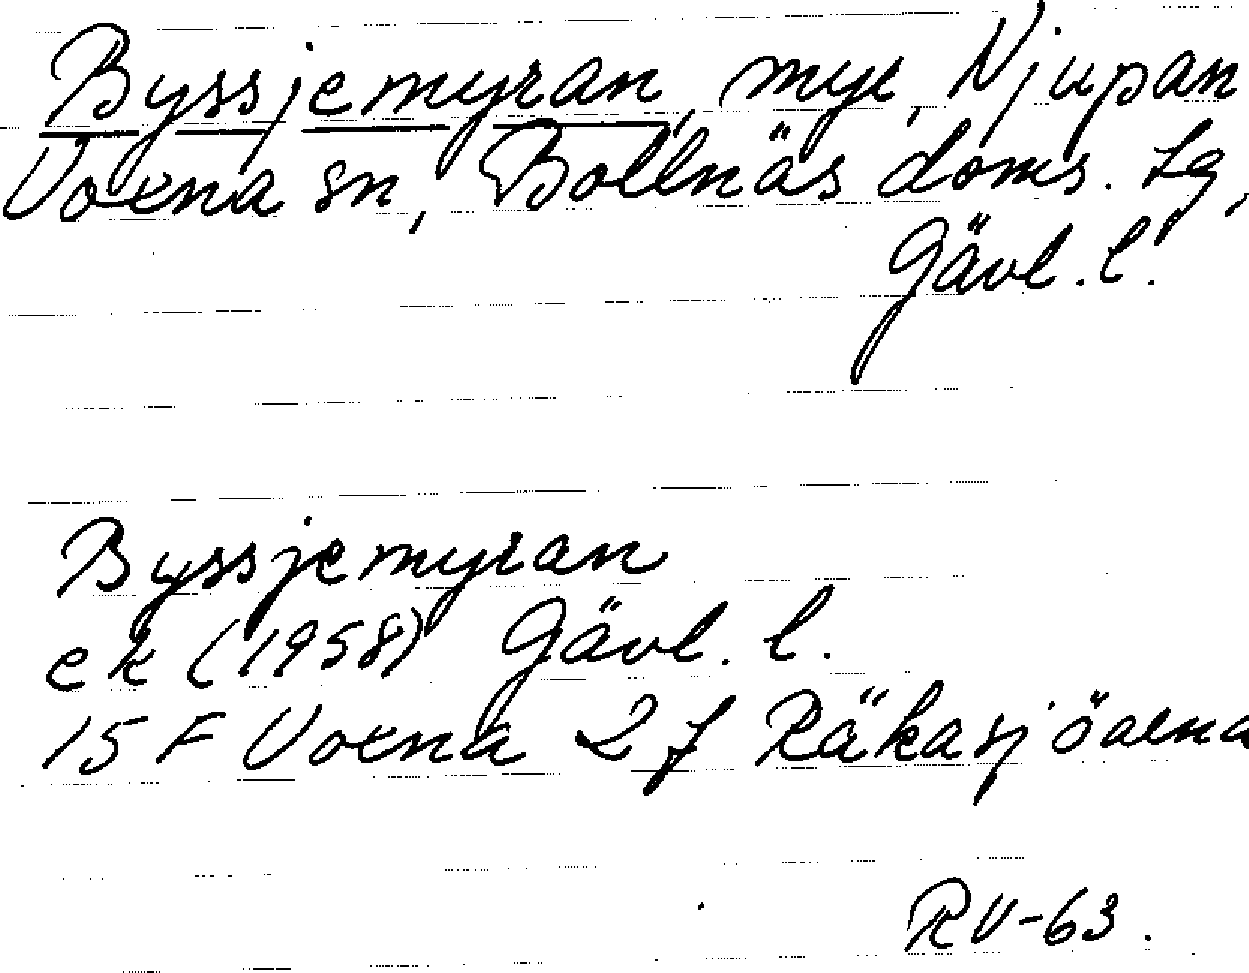 Byssjemyran, myr, Njupan
Voxna sn, Bollnäs doms. tg,
Gävl. l.
Byssjemyran
ek (1958) Gävl. l.
15 F Voxna 2 f Räkasjöarna
RV-63.